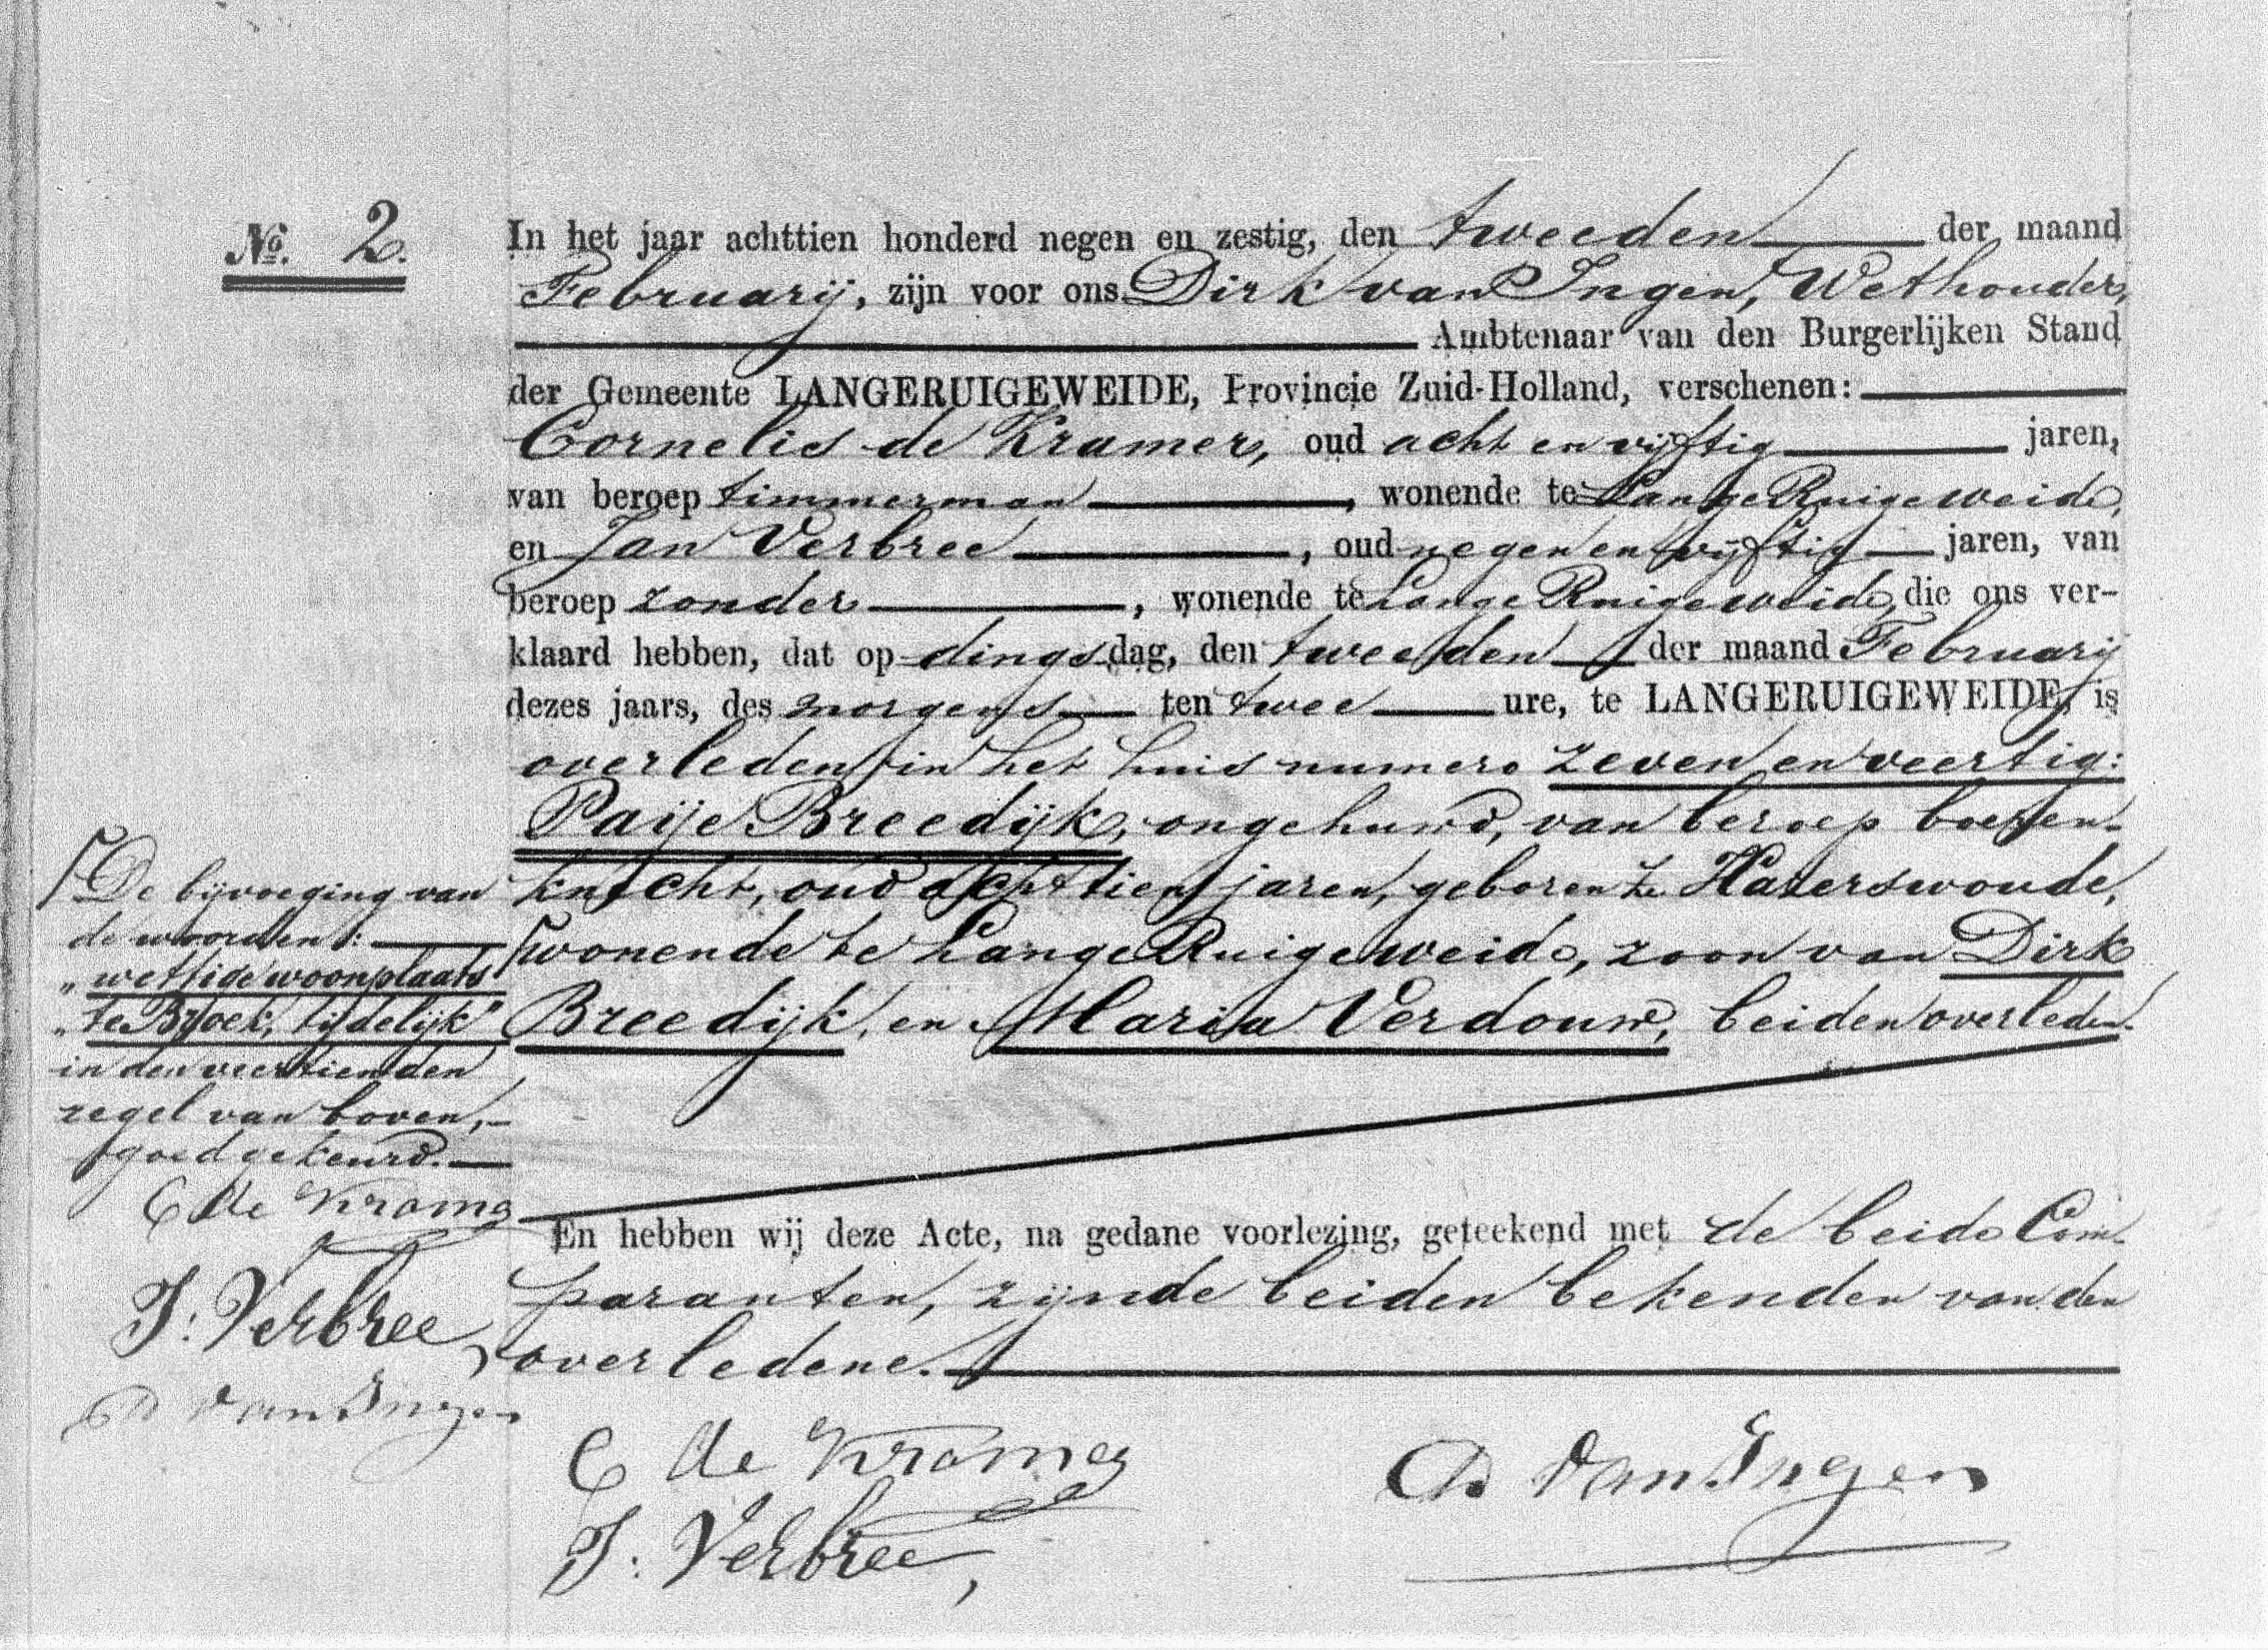 No. 2.
In het jaar achttien honderd negen en zestig, den tweeden der maand
Februarij, zijn voor ons Dirk van Ingen, Wethouder,
Ambtenaar van den Burgerlijken Stand
der Gemeente LANGERUIGEWEIDE, Provincie Zuid-Holland, verschenen:
Cornelis de Kramer, oud acht en vijftig jaren,
van beroep timmerman, wonende te Lange Ruige weide,
en Jan Verbree, oud negen en vijftig jaren, van
beroep zonder, wonende te Lange Ruige weide, die ons ver-
klaard hebben, dat op dingsdag, den tweeden der maand Februarij
dezes jaars, des morgens ten twee ure, te LANGERUIGEWEIDE, is
overleden in het huis numero zeven en veertig:
Paije Breedijk, ongehuwd, van beroep boeren-
knecht, oud achttien jaren, geboren te Hazerswoude,
wonende te Lange Ruige weide, zoon van Dirk
Breedijk, en Maria Verdouw, beiden overleden.
De bijvoeging van
de woorden:
„wettige woonplaats
„te Broek, tijdelijk"
in den veertienden
regel van boven,
goedgekeurd.
C de Kramer
J: Verbree,
D van Ingen
En hebben wij deze Acte, na gedane voorlezing, geteekend met de beide Com-
paranten, zijnde beiden bekenden van den
overledene.
C de Kramer
J: Verbree,
D van Ingen